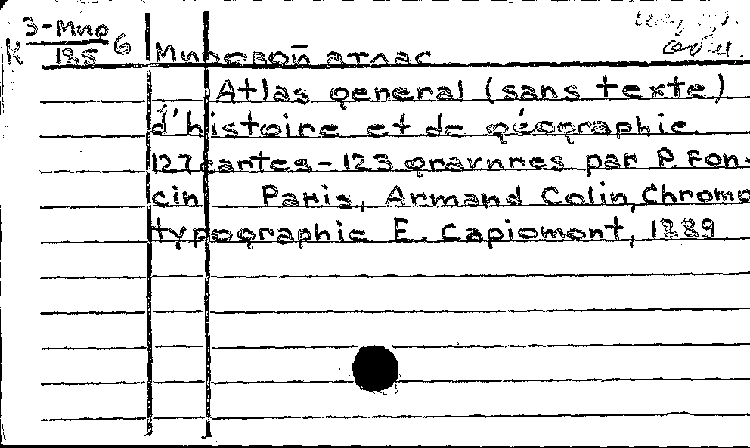 3-Мир
К 6
185
Мировой атлас
Atlas general (sans texte)
d'histoire et de géographie.
127 cartes - 123 gravures par P. Fon-
cin Paris, Armand Colin, Chromo
typographie E. Capiomont, 1889